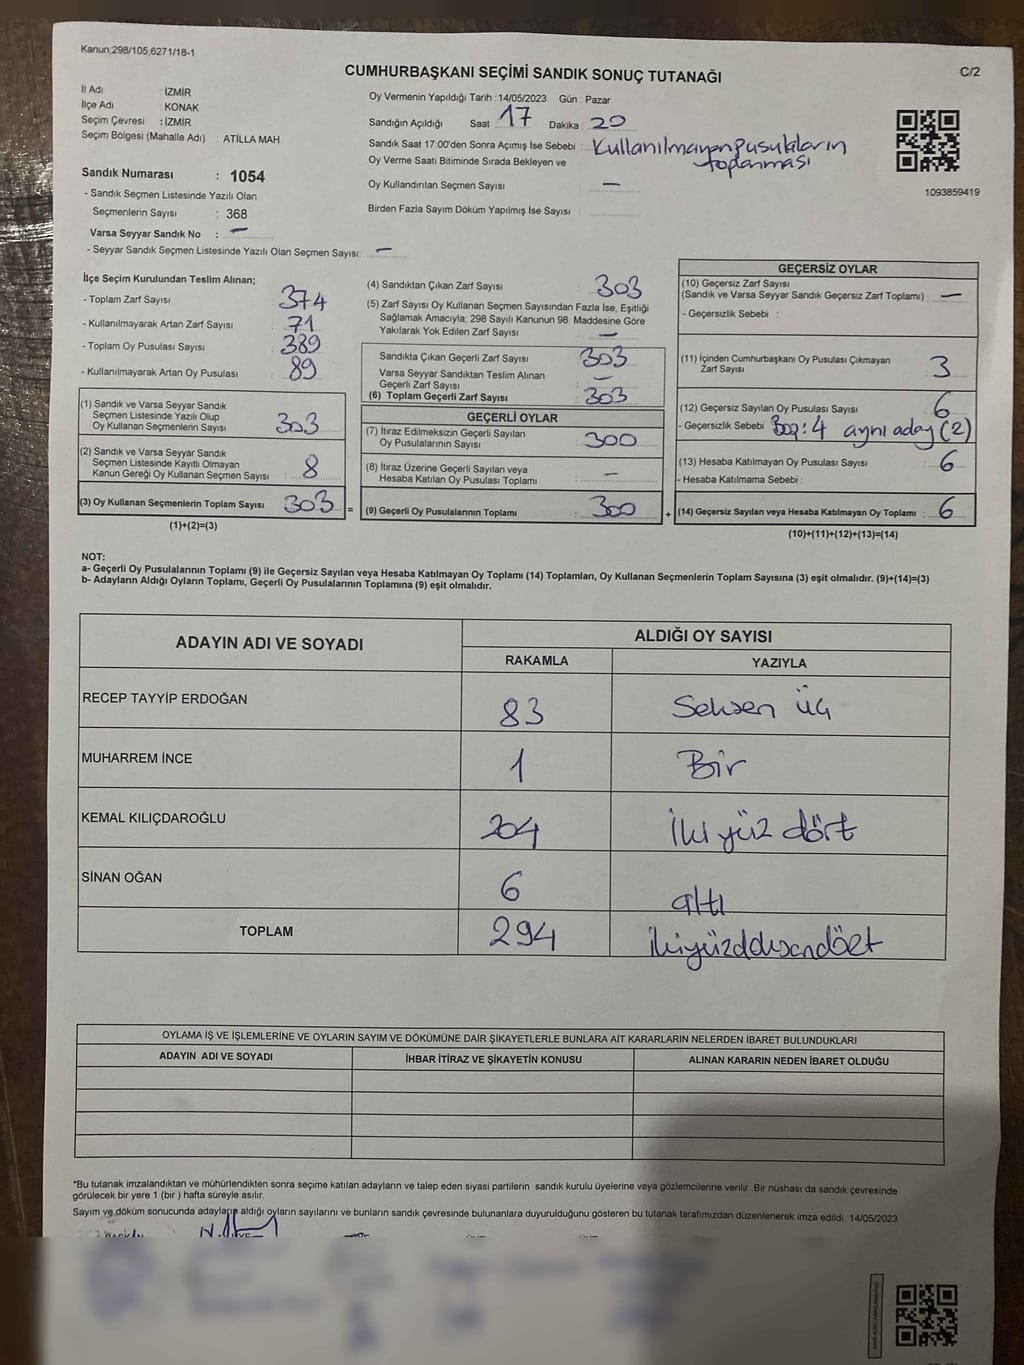 Kanun;298/105,6271/18-1
CUMHURBAŞKANI SEÇİMİ SANDIK SONUÇ TUTANAĞI
C/2
İl Adı : İZMİR
İlçe Adı : KONAK
Seçim Çevresi : İZMİR
Seçim Bölgesi (Mahalle Adı) : ATİLLA MAH.
Sandık Numarası : 1054
- Sandık Seçmen Listesinde Yazılı Olan
Seçmenlerin Sayısı : 368
Varsa Seyyar Sandık No : —
- Seyyar Sandık Seçmen Listesinde Yazılı Olan Seçmen Sayısı: —
Oy Vermenin Yapıldığı Tarih : 14/05/2023 Gün : Pazar
Sandığın Açıldığı Saat : 17 Dakika : 20
Sandık Saat 17.00'den Sonra Açımış İse Sebebi : Kullanılmayan pusulaların
toplanması
Oy Verme Saati Bitiminde Sırada Bekleyen ve
Oy Kullandırılan Seçmen Sayısı : —
Birden Fazla Sayım Döküm Yapılmış İse Sayısı :
1093859419
İlçe Seçim Kurulundan Teslim Alınan;
- Toplam Zarf Sayısı : 374
- Kullanılmayarak Artan Zarf Sayısı : 71
- Toplam Oy Pusulası Sayısı : 389
- Kullanılmayarak Artan Oy Pusulası : 89
(1) Sandık ve Varsa Seyyar Sandık
Seçmen Listesinde Yazılı Olup
Oy Kullanan Seçmenlerin Sayısı : 303
(2) Sandık ve Varsa Seyyar Sandık
Seçmen Listesinde Kayıtlı Olmayan
Kanun Gereği Oy Kullanan Seçmen Sayısı : 8
(3) Oy Kullanan Seçmenlerin Toplam Sayısı : 303 =
(1)+(2)=(3)
(4) Sandıktan Çıkan Zarf Sayısı : 303
(5) Zarf Sayısı Oy Kullanan Seçmen Sayısından Fazla İse, Eşitliği
Sağlamak Amacıyla; 298 Sayılı Kanunun 98. Maddesine Göre
Yakılarak Yok Edilen Zarf Sayısı : —
Sandıkta Çıkan Geçerli Zarf Sayısı : 303
Varsa Seyyar Sandıktan Teslim Alınan
Geçerli Zarf Sayısı : —
(6) Toplam Geçerli Zarf Sayısı : 303
GEÇERLİ OYLAR
(7) İtiraz Edilmeksizin Geçerli Sayılan
Oy Pusulalarının Sayısı : 300
(8) İtiraz Üzerine Geçerli Sayılan veya
Hesaba Katılan Oy Pusulası Toplamı : —
(9) Geçerli Oy Pusulalarının Toplamı : 300 +
GEÇERSİZ OYLAR
(10) Geçersiz Zarf Sayısı
(Sandık ve Varsa Seyyar Sandık Geçersiz Zarf Toplamı) : —
- Geçersizlik Sebebi :
(11) İçinden Cumhurbaşkanı Oy Pusulası Çıkmayan
Zarf Sayısı : 3
(12) Geçersiz Sayılan Oy Pusulası Sayısı : 6
- Geçersizlik Sebebi : Boş: 4 aynı aday (2)
(13) Hesaba Katılmayan Oy Pusulası Sayısı : 6
- Hesaba Katılmama Sebebi :
(14) Geçersiz Sayılan veya Hesaba Katılmayan Oy Toplamı : 6
(10)+(11)+(12)+(13)=(14)
NOT:
a- Geçerli Oy Pusulalarının Toplamı (9) ile Geçersiz Sayılan veya Hesaba Katılmayan Oy Toplamı (14) Toplamları, Oy Kullanan Seçmenlerin Toplam Sayısına (3) eşit olmalıdır. (9)+(14)=(3)
b- Adayların Aldığı Oyların Toplamı, Geçerli Oy Pusulalarının Toplamına (9) eşit olmalıdır.
ADAYIN ADI VE SOYADI
ALDIĞI OY SAYISI
RAKAMLA YAZIYLA
RECEP TAYYİP ERDOĞAN 83 Seksen üç
MUHARREM İNCE 1 Bir
KEMAL KILIÇDAROĞLU 204 İki yüz dört
SİNAN OĞAN 6 altı
TOPLAM 294
OYLAMA İŞ VE İŞLEMLERİNE VE OYLARIN SAYIM VE DÖKÜMÜNE DAİR ŞİKAYETLERLE BUNLARA AİT KARARLARIN NELERDEN İBARET BULUNDUKLARI
ADAYIN ADI VE SOYADI İHBAR İTİRAZ VE ŞİKAYETİN KONUSU ALINAN KARARIN NEDEN İBARET OLDUĞU
*Bu tutanak imzalandıktan ve mühürlendikten sonra seçime katılan adayların ve talep eden siyasi partilerin sandık kurulu üyelerine veya gözlemcilerine verilir. Bir nüshası da sandık çevresinde
görülecek bir yere 1 (bir ) hafta süreyle asılır.
Sayım ve döküm sonucunda adayların aldığı oyların sayılarını ve bunların sandık çevresinde bulunanlara duyurulduğunu gösteren bu tutanak tarafımızdan düzenlenerek imza edildi. 14/05/2023